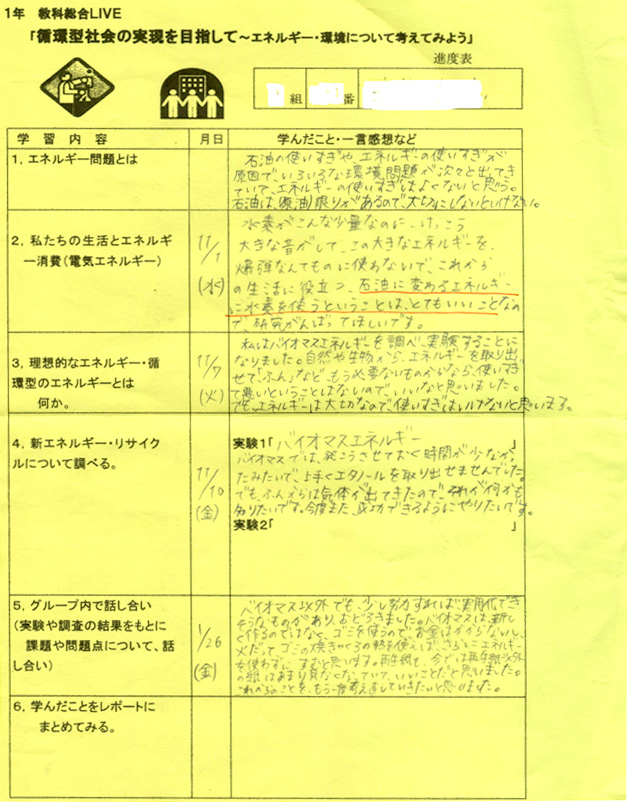 1年 教科総合LIVE
「循環型社会の実現を目指して～エネルギー・環境について考えてみよう」
進度表
組 番
学習内容 月日 学んだこと・一言感想など
1，エネルギー問題とは
石油の使いすぎや、エネルギーの使いすぎが
原因で、いろいろな環境問題が次々と出てき
ていて、エネルギーの使いすぎはよくないと思う。
石油は(原油)限りがあるので大切にしないといけない。
2，私たちの生活とエネルギ
ー消費（電気エネルギー）
11/1
(水)
水素がこんな少量なのに、けっこう
大きな音がして、この大きなエネルギーを、
爆弾なんてものに使わないで、これから
の生活に役立つ、石油に変わるエネルギー
に水素を使うということは、とてもいいことなの
で、研究がんばってほしいです。
3，理想的なエネルギー・循
環型のエネルギーとは
何か。
11/7
(火)
私はバイオマスエネルギーを調べ、実験することに
なりました。自然や生物から、エネルギーを取り出
せて、「ふん」など、もう必要ないものからなら、使いすぎ
て悪いということはないので、いいなと思いました。
でも、エネルギーは大切なので、使いすぎはいけないと思います。
4，新エネルギー・リサイク
ルについて調べる。
11/10
(金)
実験1「バイオマスエネルギー」
バイオマスでは、発こうさせておく時間が少なかっ
たみたいで、上手くエタノールを取り出せませんでした。
でも、ふんからは気体が出てきたので、それが何かも
知りたいです。今度また、成功できるようにやりたいです。
実験2「 」
5，グループ内で話し合い
（実験や調査の結果をもとに
課題や問題点について、話
し合い）
1/26
(金)
バイオマス以外でも、少し努力すれば、実用化でき
そうなものがあり、おどろきました。バイオマスは、新し
く作るのではなく、ゴミを使うので、お金はかからないし、
火だって、ゴミの焼きゃくろの熱を使えば、さらにエネルギー
を使わずに、すむと思います。再生紙も、今では再生紙以外
の紙はあまり見なくなっていて、いいことだと思いました。
これからのことを、もう一度考え直していきたいと思いました。
6，学んだことをレポートに
まとめてみる。